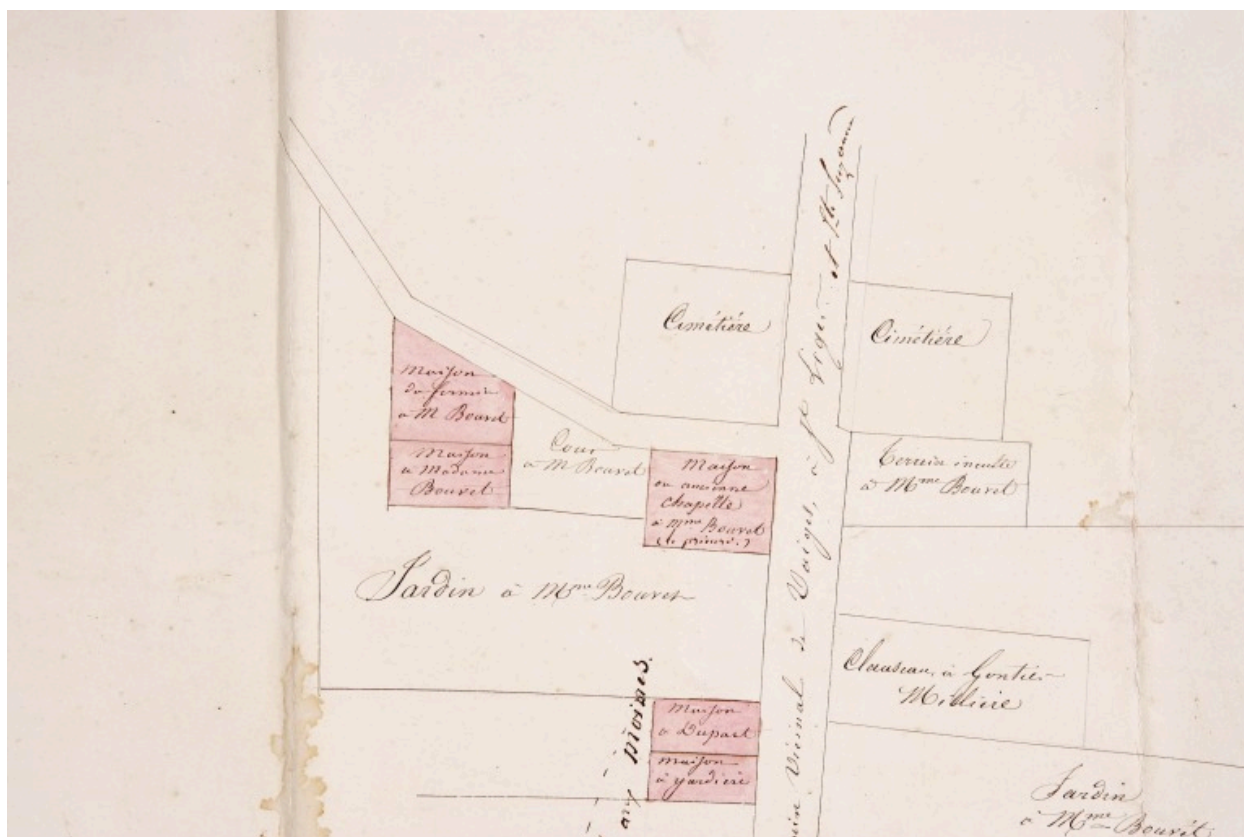 Cimétière
Cimétière
Maison
du fermier
à M Bouvet
Maison
à Madame
Bouvet
Cour
à M Bouvet
Maison
ou ancienne
chapelle
à Mme Bouvet
(le prieuré)
Terrain inculte
à Mme Bouvet
Jardin à Mme Bouvet
Vicinal de Vaiges, à St Léger et Ste Suzanne
Clauseau à Gontier
Millière
Maison
à Dupart
Maison
à
aux Moines.
Jardin
à Mme Bouvet